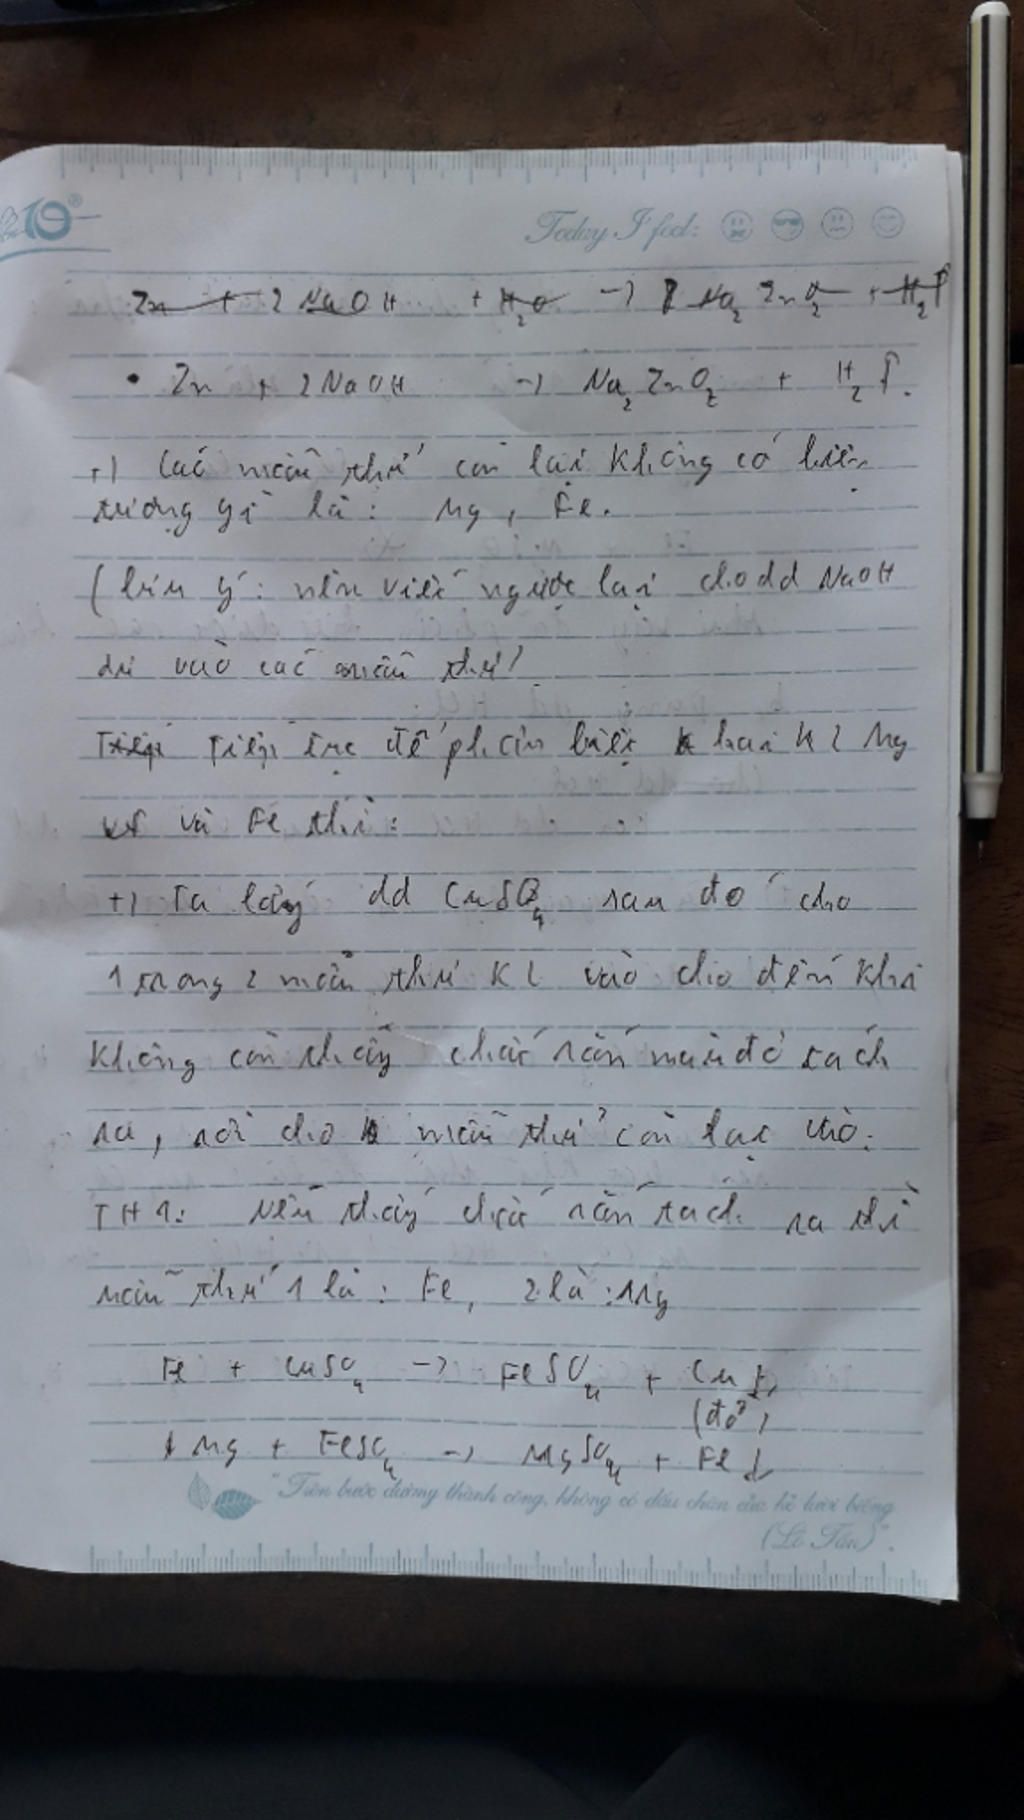 10
Today I feel:
Zn + 2 NaOH + H₂O → Na₂ZnO₂ + H₂↑
• Zn + 2NaOH → Na₂ZnO₂ + H₂↑.
+) Các mẫu thử còn lại không có hiện
tượng gì là: Mg, Fe.
(lưu ý: nên viết ngược lại cho dd NaOH
dư vào các mẫu thử)
Tiếp Tiếp tục để phân biệt hai KL Mg
và Fe thì:
+) Ta lấy dd CuSO₄ sau đó cho
1 trong 2 mẫu thử KL vào cho đến khi
không còn thấy chất rắn màu đỏ tách
ra, rồi cho mẫu thử còn lại vào.
TH1: Nếu thấy chất rắn tách ra thì
mẫu thử 1 là: Fe, 2 là: Mg
Fe + CuSO₄ → FeSO₄ + Cu↓
(đỏ)
Mg + FeSO₄ → MgSO₄ + Fe↓
"Trên bước đường thành công, không có dấu chân của kẻ lười biếng
(Lỗ Tấn)".